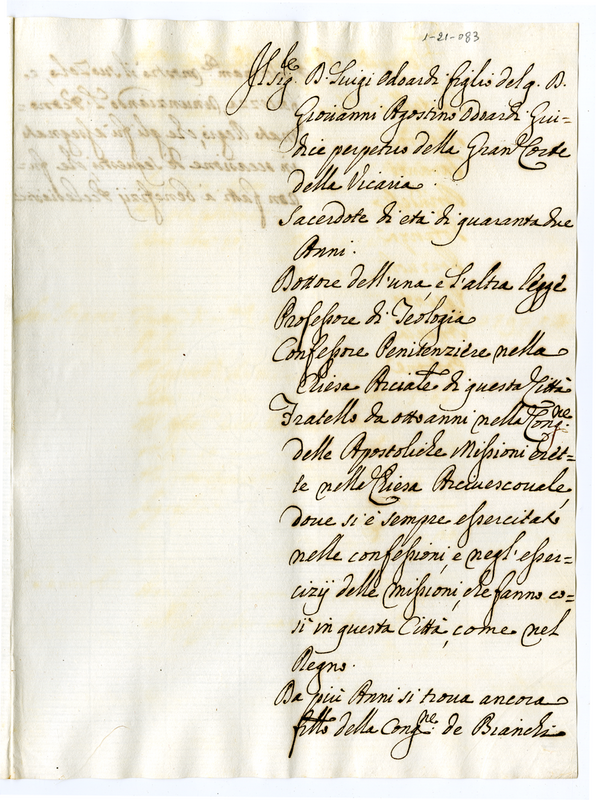 1-21-083
Il Sig.le D. Luigi Odoardi figlio del q. D.
Giovanni Agostino Odoardi Giu=
dice perpetuo della Gran Corte
della Vicaria.
Sacerdote di età di quaranta due
Anni.
Dottore dell'una, e l'altra legge
Professore di Teologia
Confessore Penitenziere nella
Chiesa Arciale di questa Città
Fratello da otto anni nella Congne
delle Apostoliche Missioni eret=
te nella Chiesa Arcivescovale,
dove si è sempre essercitato
nelle confessioni, e negl'esser=
cizij delle missioni, che fanno co=
sì in questa Città, come nel
Regno.
Da più Anni si trova ancora
frllo della Congne: de Bianchi